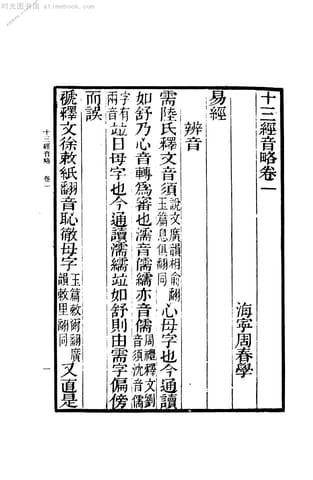 时光图书馆 atimebook.com
十三經音略卷一
海寧周春學
易經
辨音
需陸氏釋文音須說文廣韻相俞翻玉篇息俱翻同心母字也今通讀
如舒乃心音轉爲審也濡音儒繻亦音儒周禮釋文劉音須沈音儒
字有兩音竝日母字也今通讀濡繻竝如舒則由需字偏傍
而誤
褫釋文徐敕紙翻音恥徹母字玉篇敕爾翻廣韻敕里翻同又直是
十三經音略 卷一 一